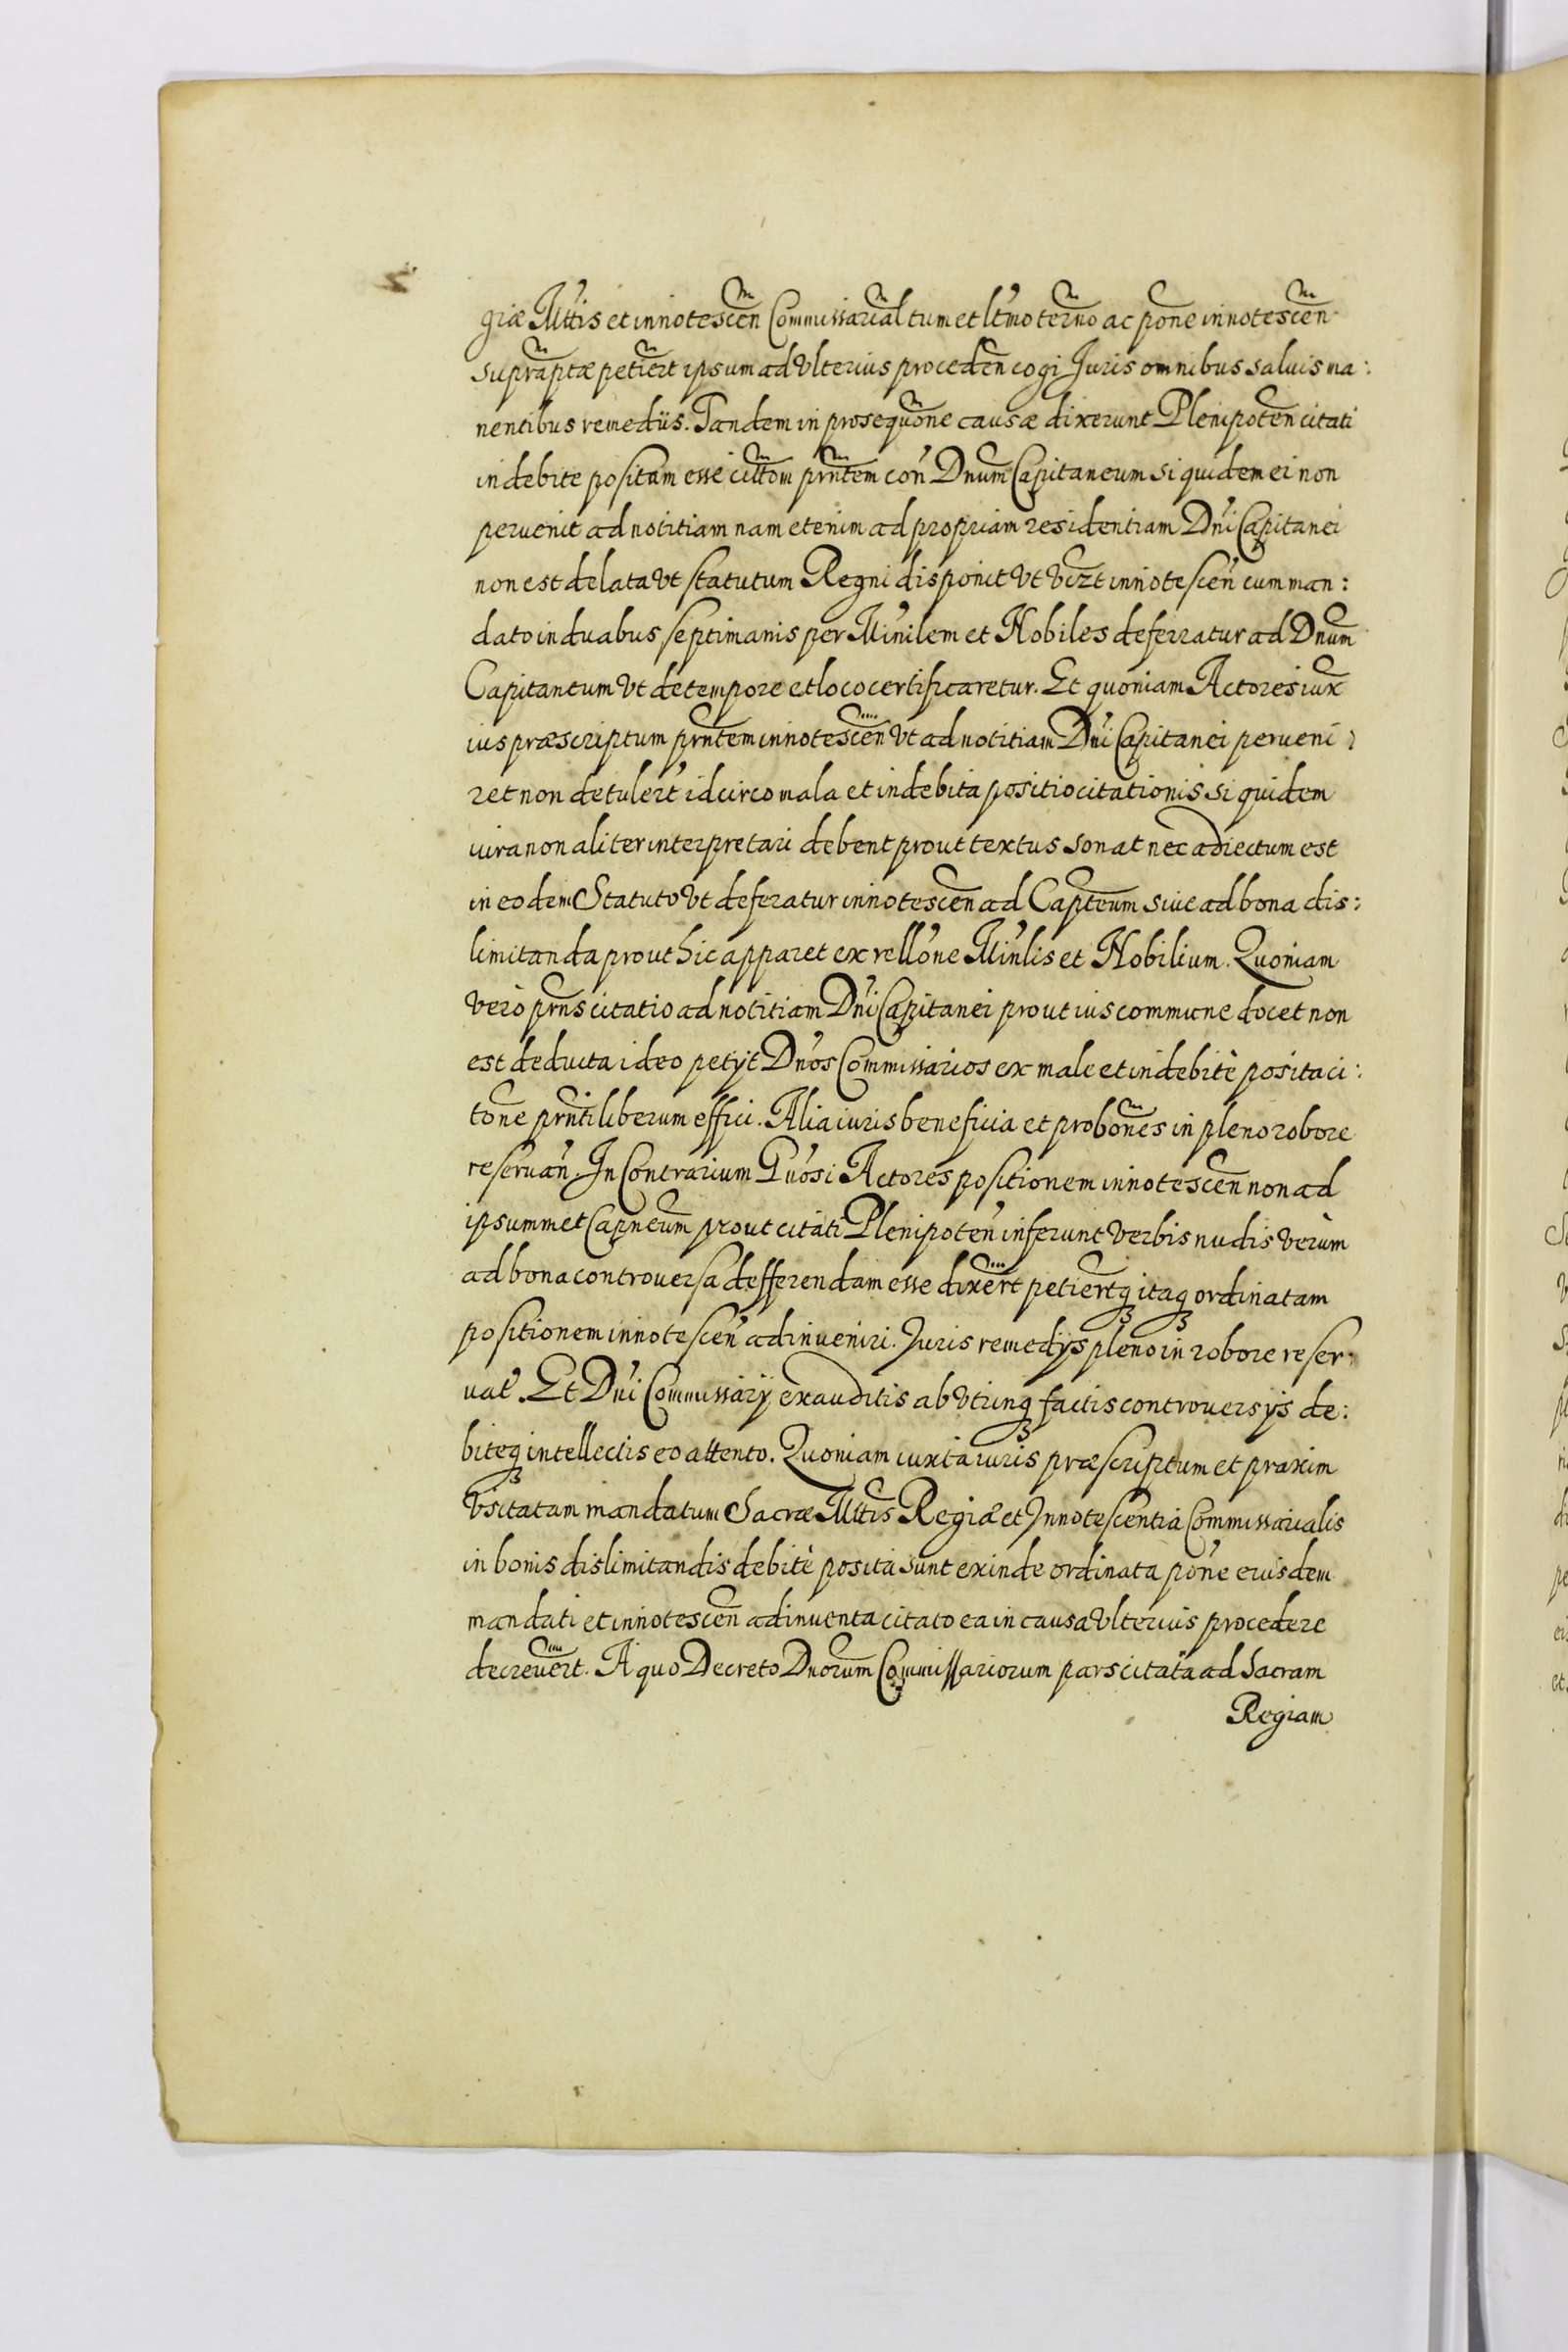 giæ Mttis et innotescen Commissarial tum et ltmo termo ac pone innotescen
supraptæ petiert ipsum ad Vlterius proceden cogi Juris omnibus saluis ma:
nentibus remediis. Tandem in prosequone causæ dixerunt Plenipoten citati
indebite positam esse cittom prntem con Dnum Capitaneum siquidem ei non
peruenit ad notitiam nam etenim ad propriam residentiam Dni Capitanei
non est delata Vt statutum Regni disponit Vt Vizt innotescen cum man:
dato in duabus septimanis per Minilem et Nobiles deferratur ad Dnum
Capitaneum Vt de tempore et loco certificaretur. Et quoniam Actores iux
ius præscriptum prntem innotescen Vt ad notitiam Dni Capitanei perueni:
ret non detulert idcirco mala et indebita positio citationis siquidem
iura non aliter interpretari debent prout textus sonat nec adiectum est
in eodem Statuto Vt deferatur innotescen ad Capteum siue ad bona dis:
limitanda prout hic apparet ex rellone Minlis et Nobilium. Quoniam
Vero prns citatio ad notitiam Dni Capitanei prout ius commune docet non
est deducta ideo petijt Dnos Commissarios ex male et indebitè posita ci:
tone prnti liberum effici. Alia iuris beneficia et probones in pleno robore
reseruan. In Contrarium Gnosi Actores positionem innotescen non ad
ipsummet Capneum prout citati Plenipoten inferunt Verbis nudis Verùm
ad bona controuersa defferendam esse dixert petiertq itaq ordinatam
positionem innotescen adinueniri. Juris remedijs pleno in robore reser:
uat. Et Dni Commissarij exauditis ab Vtrinq factis controuersijs de:
biteq intellectis eo attento. Quoniam iuxta iuris præscriptum et praxim
Vsitatam mandatum Sacræ Mttis Regiæ et Innotescentia Commissarialis
in bonis dislimitandis debitè posita sunt exinde ordinata pone eiusdem
mandati et innotescen adinuenta citato ea in causa Vlterius procedere
decreuert. A quo Decreto Dnorum Commissariorum pars citata ad Sacram
Regiam